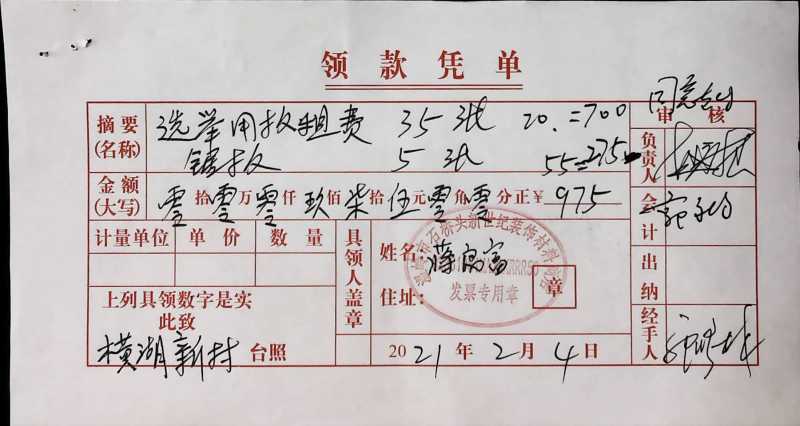 领款凭单
同意
摘要(名称) 选举用板租费 35张 20.=700
板 5张 55=275
金额(大写) 零拾零万零仟玖佰柒拾伍元零角零分正¥ 975
审核
负责人
会计
出纳
经手人
计量单位 单价 数量
具领人盖章
姓名:蒋富富
住址:
章
石桥头新世纪装饰材料
发票专用章
上列具领数字是实
此致
横湖新村 台照
2021年2月4日